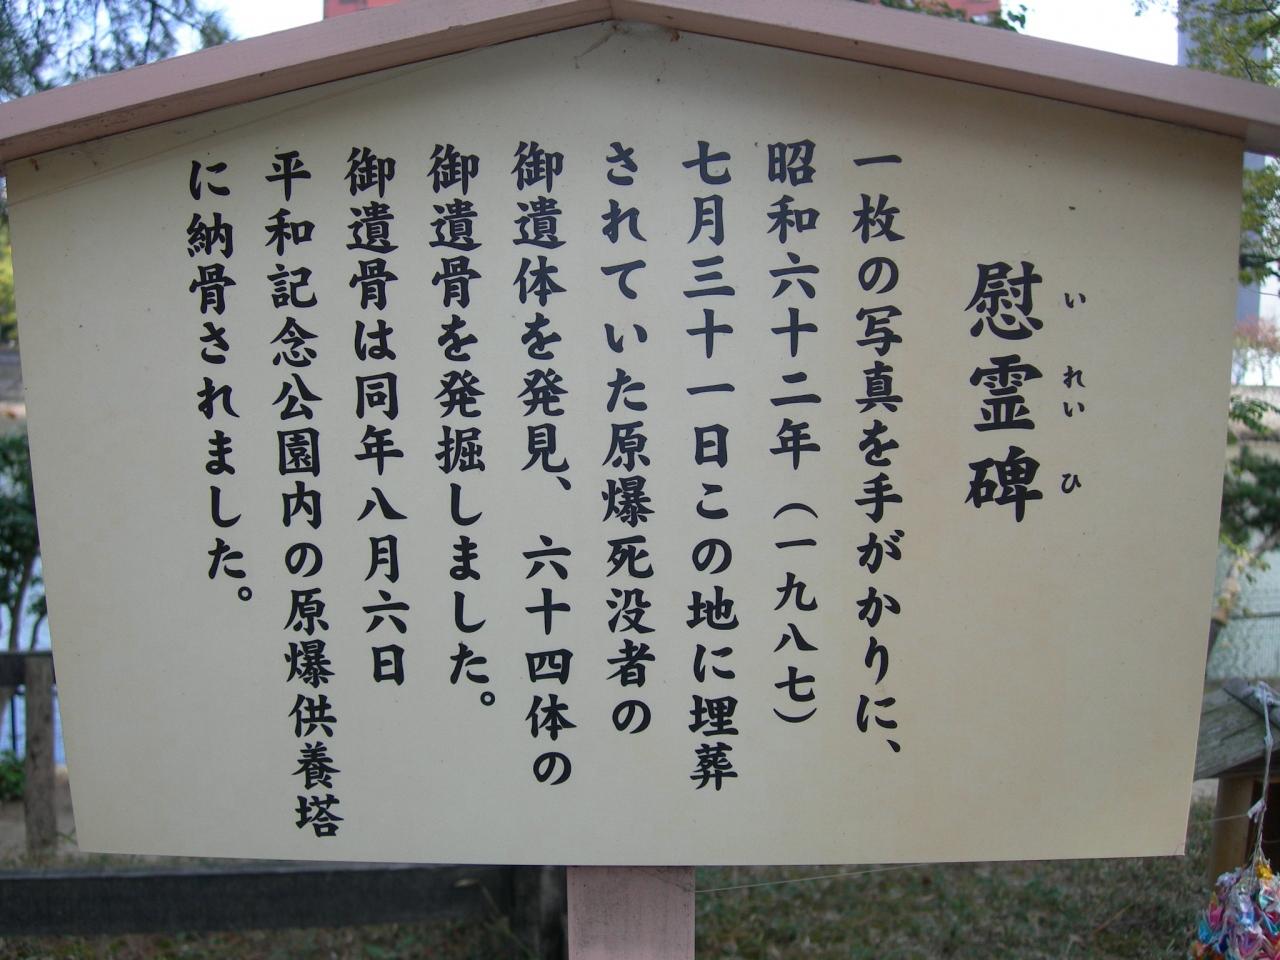 慰霊碑
いれいひ
一枚の写真を手がかりに、
昭和六十二年（一九八七）
七月三十一日この地に埋葬
されていた原爆死没者の
御遺体を発見、六十四体の
御遺骨を発掘しました。
御遺骨は同年八月六日
平和記念公園内の原爆供養塔
に納骨されました。